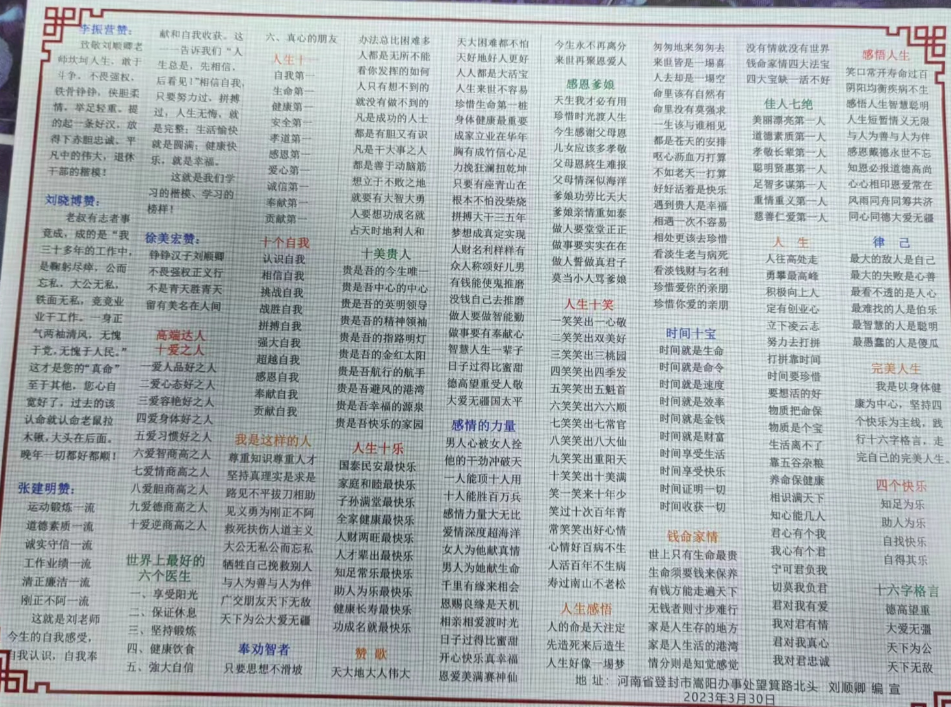 李振营赞:
致敬刘顺卿老
师坎坷人生，敢于
斗争，不畏强权，
铁骨铮铮，侠胆柔
情，举足轻重，提
的起一条好汉，放
得下赤胆忠诚，平
凡中的伟大，退休
干部的楷模！
刘晓博赞:
老叔有志者事
竟成，成的是“我
三十多年的工作中，
是鞠躬尽瘁，公而
忘私，大公无私，
铁面无私，兢兢业
业干工作。一身正
气两袖清风，无愧
于党，无愧于人民。”
这才是您的“真命”
至于其他，您心自
觉好了，过去的该
认命就认命老鼠拉
木锨，大头在后面。
晚年一切都好都顺！
张建明赞:
运动锻炼一流
道德素质一流
诚实守信一流
工作业绩一流
清正廉洁一流
刚正不阿一流
这就是刘老师
今生的自我感受，
自我认识，自我奉
献和自我收获。这
一一告诉我们“人
生总是，先相信，
后看见！”相信自我，
只要努力过，拼搏
过，人生无悔，就
是完整；生活愉快
就是圆满；健康快
乐，就是幸福。
这就是我们学
习的楷模、学习的
榜样！
徐美宏赞:
铮铮汉子刘顺卿
不畏强权正义行
不是青天胜青天
留有美名在人间
高端达人
十爱之人
一爱人品好之人
二爱心态好之人
三爱容绝好之人
四爱身体好之人
五爱习惯好之人
六爱智商高之人
七爱情商高之人
八爱胆商高之人
九爱德商高之人
十爱逆商高之人
世界上最好的
六个医生
一、享受阳光
二、保证休息
三、坚持锻炼
四、健康饮食
五、強大自信
六、真心的朋友
人生十一
自我第一
生命第一
健康第一
安全第一
孝道第一
感恩第一
爱心第一
诚信第一
奉献第一
贡献第一
十个自我
认识自我
相信自我
挑战自我
战胜自我
拼搏自我
强大自我
超越自我
感恩自我
奉献自我
贡献自我
我是这样的人
尊重知识尊重人才
坚持真理实是求是
路见不平拔刀相助
见义勇为刚正不阿
救死扶伤人道主义
大公无私公而忘私
牺牲自己挽救别人
与人为善与人为伴
广交朋友天下无敌
天下为公大爱无疆
奉劝智者
只要思想不滑坡
办法总比困难多
人都是无所不能
看你发挥的如何
人只有想不到的
就没有做不到的
凡是成功的人士
都是有胆又有识
凡是干大事之人
都是善于动脑筋
想立于不败之地
就要有大智大勇
人要想功成名就
占天时地利人和
十美贵人
贵是吾的今生唯一
贵是吾中心的中心
贵是吾的英明领导
贵是吾的精神领袖
贵是吾的指路明灯
贵是吾的金红太阳
贵是吾航行的航手
贵是吾避风的港湾
贵是吾幸福的源泉
贵是吾快乐的家园
人生十乐
国泰民安最快乐
家庭和睦最快乐
子孙满堂最快乐
全家健康最快乐
人财两旺最快乐
人才辈出最快乐
知足常乐最快乐
助人为乐最快乐
健康长寿最快乐
功成名就最快乐
赞 歌
天大地大人伟大
天大困难都不怕
天好地好人更好
人人都是大活宝
人生来世不容易
珍惜生命第一桩
身体健康最重要
成家立业在华年
胸有成竹信心足
力挽狂澜扭乾坤
只要有座青山在
根本不怕没柴烧
拼搏大干三五年
梦想成真定实现
人财名利样样有
众人称颂好儿男
有钱能使鬼推磨
没钱自己去推磨
做人要做智能勤
做事要有奉献心
智慧人生一辈子
日子过得比蜜甜
德高望重受人敬
大爱无疆国太平
感情的力量
男人心被女人拴
他的干劲冲破天
一人能顶十人用
十人能胜百万兵
感情力量大无比
爱情深度超海洋
女人为他献真情
男人为她献生命
千里有缘来相会
恩赐良缘是天机
相亲相爱渡时光
日子过得比蜜甜
开心快乐真幸福
恩爱美满赛神仙
今生永不再离分
来世再聚恩爱人
感恩爹娘
天生我才必有用
珍惜时光渡人生
今生感谢父母恩
儿女应该多孝敬
父母恩终生难报
父母情深似海洋
爹娘功劳比天大
爹娘亲情重如泰
做人要堂堂正正
做事要实实在在
做人誓做真君子
莫当小人骂爹娘
人生十笑
一笑笑出一心敬
二笑笑出双美好
三笑笑出三桃园
四笑笑出四季发
五笑笑出五魁首
六笑笑出六六顺
七笑笑出七常官
八笑笑出八大仙
九笑笑出重阳天
十笑笑出十美满
笑一笑来十年少
笑过十次百年青
常笑笑出好心情
心情好百病不生
人活百年不生病
寿过南山不老松
人生感悟
人的命是天注定
先造死来后造生
人生好像一場梦
匆匆地来匆匆去
来世皆是一場喜
人去却是一場空
命里该有自然有
命里没有莫强求
一生该与谁相见
都是苍天的安排
呕心沥血力打算
不如老天一打算
好好活着是快乐
遇到贵人是幸福
相遇一次不容易
相处更该去珍惜
看淡生老与病死
看淡钱财与名利
珍惜爱你的亲朋
珍惜你爱的亲朋
时间十宝
时间就是生命
时间就是命令
时间就是速度
时间就是效率
时间就是金钱
时间就是财富
时间享受生活
时间享受快乐
时间证明一切
时间收获一切
钱命家情
世上只有生命最贵
生命须要钱来保养
有钱方能走遍天下
无钱则寸步难行
家是人生存的地方
家是人生活的港湾
情分则是知觉感觉
没有情就没有世界
钱命家情四大法宝
四大宝缺一活不好
佳人七绝
美丽漂亮第一人
道德素质第一人
孝敬长辈第一人
聪明贤惠第一人
足智多谋第一人
重情重义第一人
慈善仁爱第一人
人 生
人往高处走
勇攀最高峰
积极向上人
定有创业心
立下凌云志
努力去打拼
打拼靠时间
时间要珍惜
要想活的好
物质把命保
物质是个宝
生活离不了
靠五谷杂粮
养命保健康
相识满天下
知心能几人
君心有个我
我心有个君
宁可君负我
切莫我负君
君对我有爱
我对君有情
君对我真心
我对君忠诚
感悟人生
笑口常开寿命过百
阴阳均衡疾病不生
感悟人生智慧聪明
人生短暂情义无限
与人为善与人为伴
感恩戴德永世不忘
知恩必报道德高尚
心心相印恩爱常在
风雨同舟同筹共济
同心同德大爱无疆
律 己
最大的敌人是自己
最大的失败是心善
最看不透的是人心
最难找的人是伯乐
最智慧的人是聪明
最愚蠢的人是傻瓜
完美人生
我是以身体健
康为中心，坚持四
个快乐为主线，践
行十六字格言，走
完自己的完美人生。
四个快乐
知足为乐
助人为乐
自找快乐
自得其乐
十六字格言
德高望重
大爱无疆
天下为公
天下无敌
地 址：河南省登封市嵩阳办事处望箕路北头 刘顺卿 编 宣
2023年3月30日